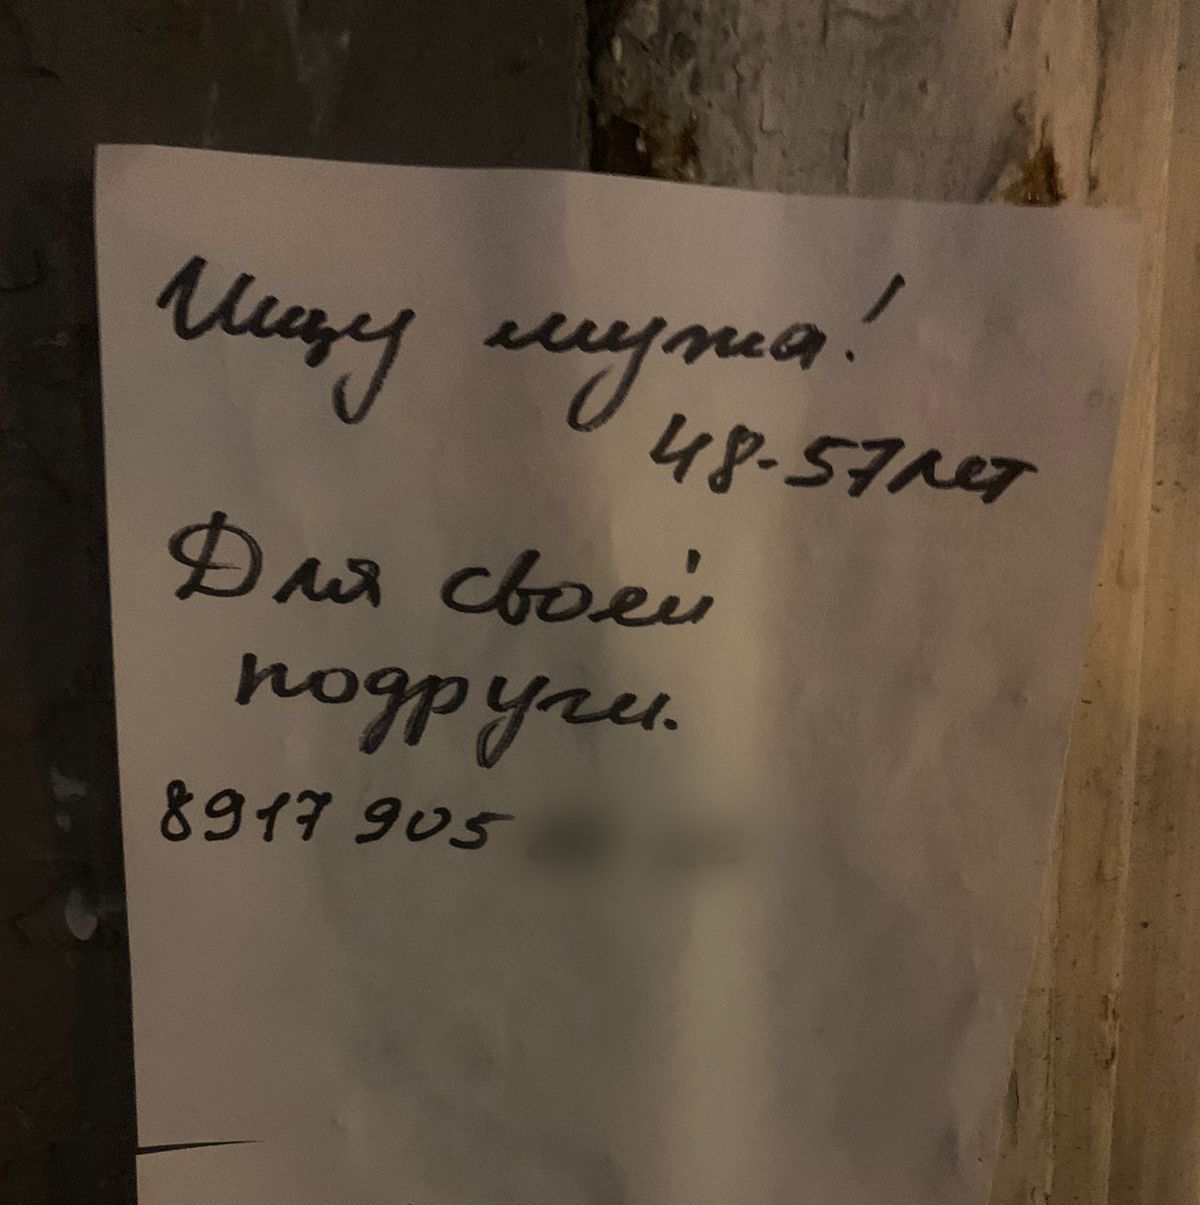 Ищу мужа!
48-57 лет
Для своей
подруги.
8917 905